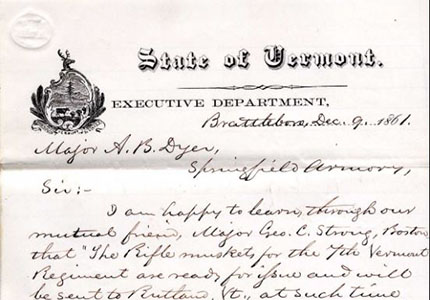 State of Vermont.
EXECUTIVE DEPARTMENT,
Brattleboro, Dec. 9, 1861.
Major A. B. Dyer,
Springfield Armory,
Sir:-
I am happy to learn, through our
mutual friend, Major Geo. C. Strong, Boston
that "The Rifle muskets for the 7th Vermont
Regiment are ready for issue and will
be sent to Rutland, Vt., at such time